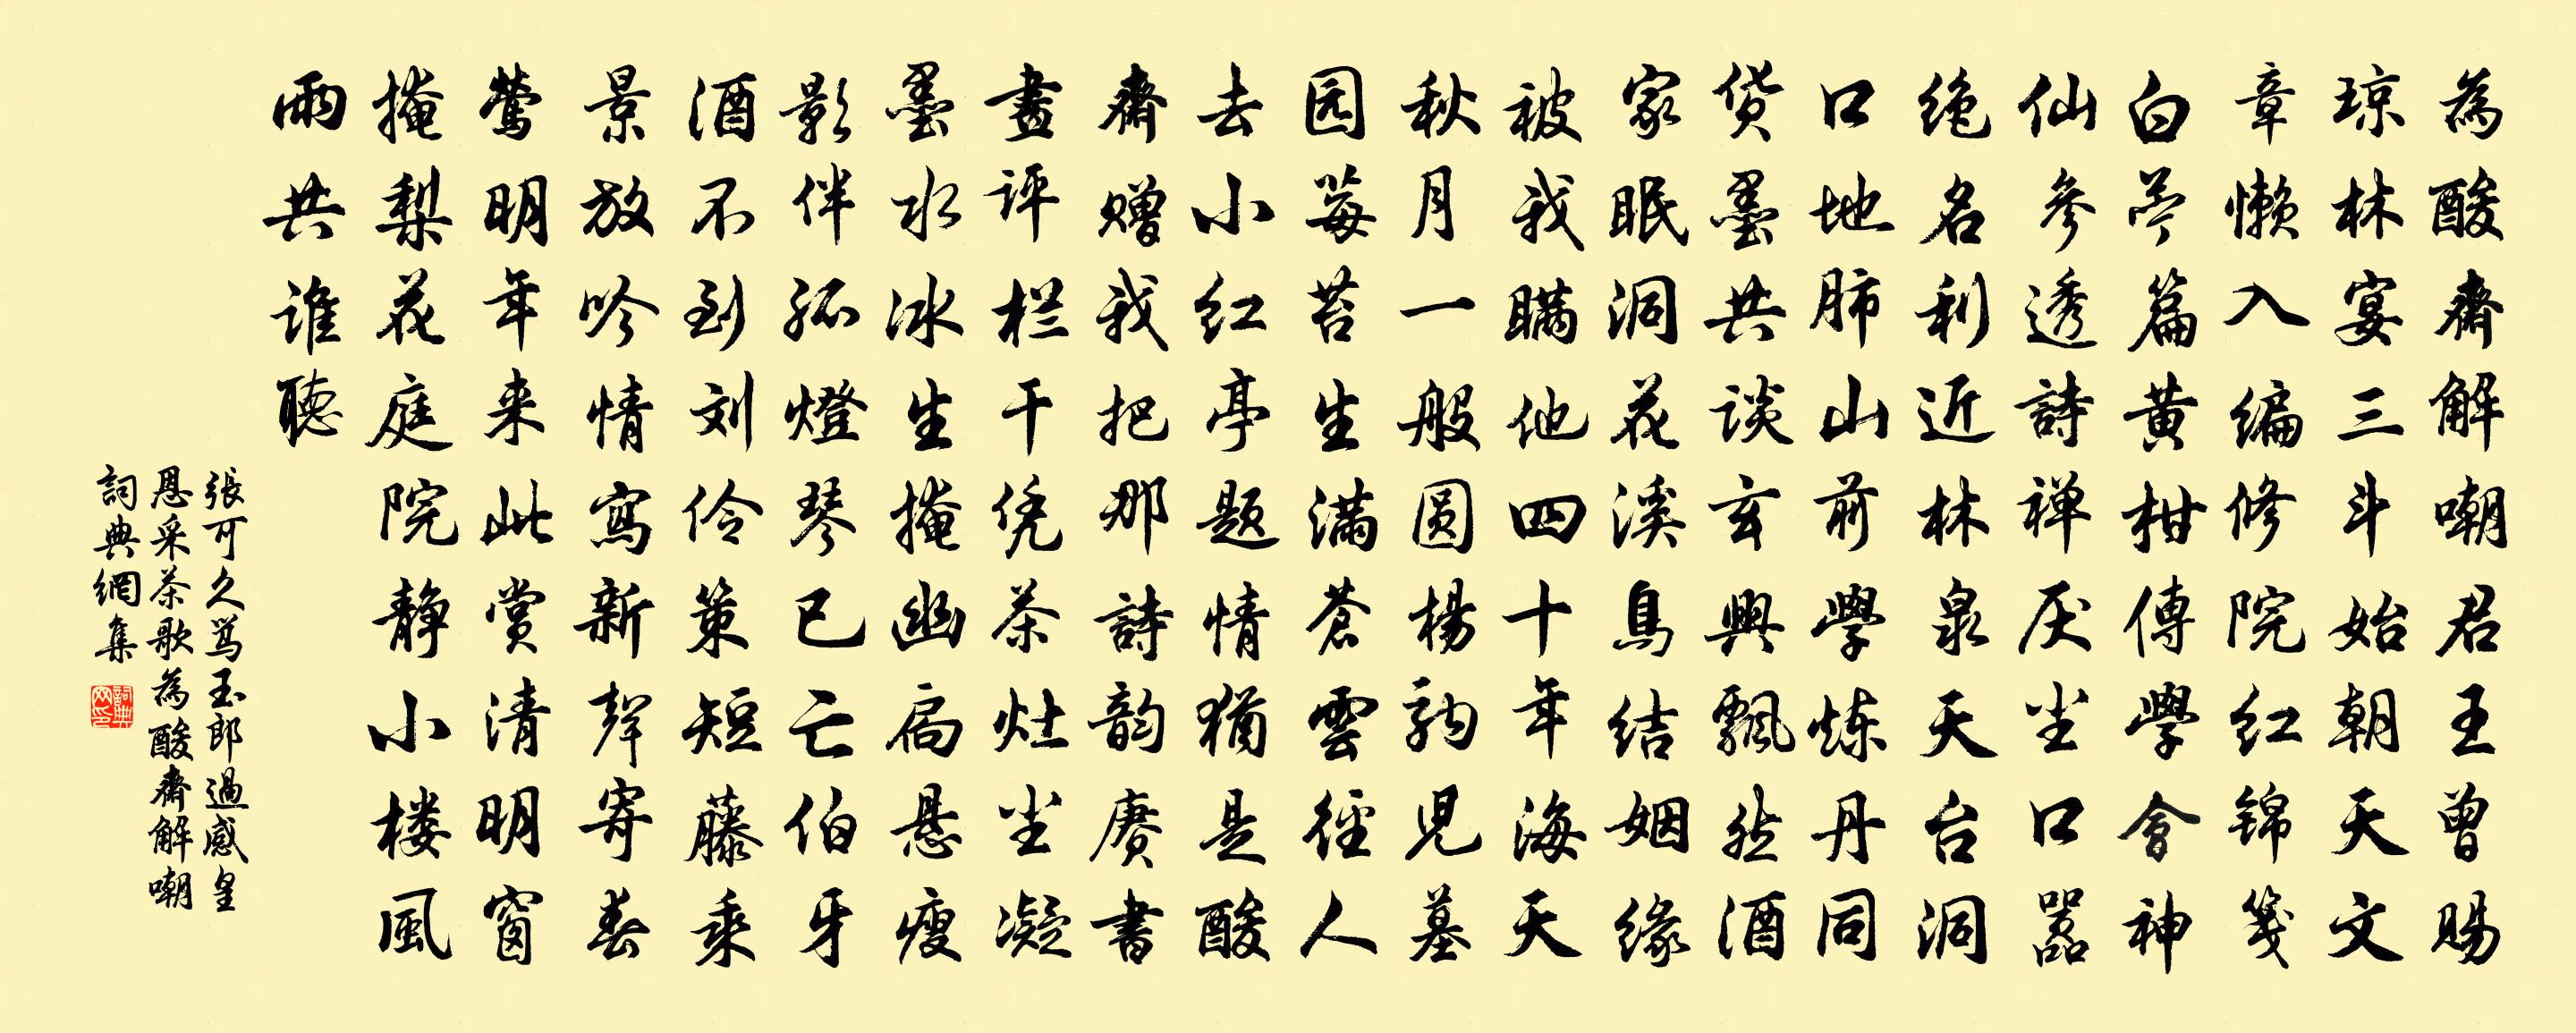 為酸齋解嘲君王曾賜
琼林宴三斗始朝天文
章懒入编修院红锦笺
白苎篇黄柑傳學會神
仙参透詩禅厌尘口嚣
绝名利近林泉天台洞
口地肺山前學炼丹同
货墨共谈玄興飄然酒
家眠洞花溪鳥结姻缘
被我瞒他四十年海天
秋月一般圆楊驹兒墓
园莓苔生满蒼雲径人
去小红亭题情猶是酸
齋赠我把那詩韵赓書
畫评栏干凭茶灶尘凝
墨水冰生掩幽扃悬瘦
影伴孤燈琴已亡伯牙
酒不到刘伶策短藤乘
景放吟情寫新聲寄春
鶯明年来此赏清明窗
掩梨花庭院静小楼風
雨共谁聽
張可久骂玉郎過感皇
恩采茶歌為酸齋解嘲
詞典網集
詞典网印